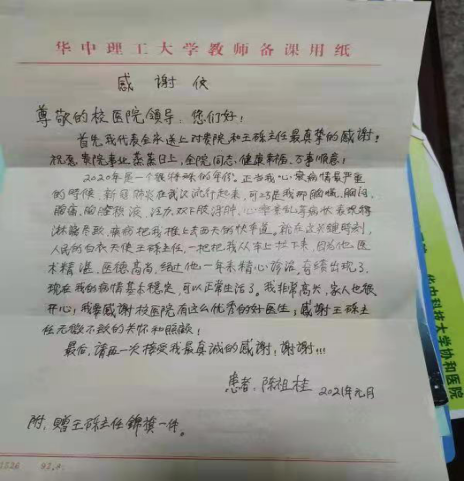 华中理工大学教师备课用纸
感谢信
尊敬的校医院领导，您们好！
首先我代表全家送上对贵院和王硃主任最真挚的感谢！
祝愿贵院事业蒸蒸日上，全院同志，健康幸福，万事顺意！
2020年是一个很特殊的年份。正当我心衰病情最严重
的时候，新冠肺炎在武汉流行起来，可巧是我那胸嘆、胸闷、
胸痛、胸腔积液、活力、双下肢浮肿、心率紊乱等病状表现得
淋漓尽致，疾病把我推上去西天的快车道。就在这关键时刻，
人民的白衣天使王硃主任，一把把我从车上拉下来，因为他医
术精湛，医德高尚，经过他一年来精心诊治，奇绩出现了。
现在我的病情基本稳定，可以正常生活了。我非常高兴，家人也很
开心；我要感谢校医院有这么优秀的好医生；感谢王硃主
任无微不致的关怀和照顾！
最后，请再一次接受我最真诚的感谢！谢谢！！！
患者：陈祖桂 2021年元月
附，赠王硃主任锦旗一件。
华中科技大学协和医院